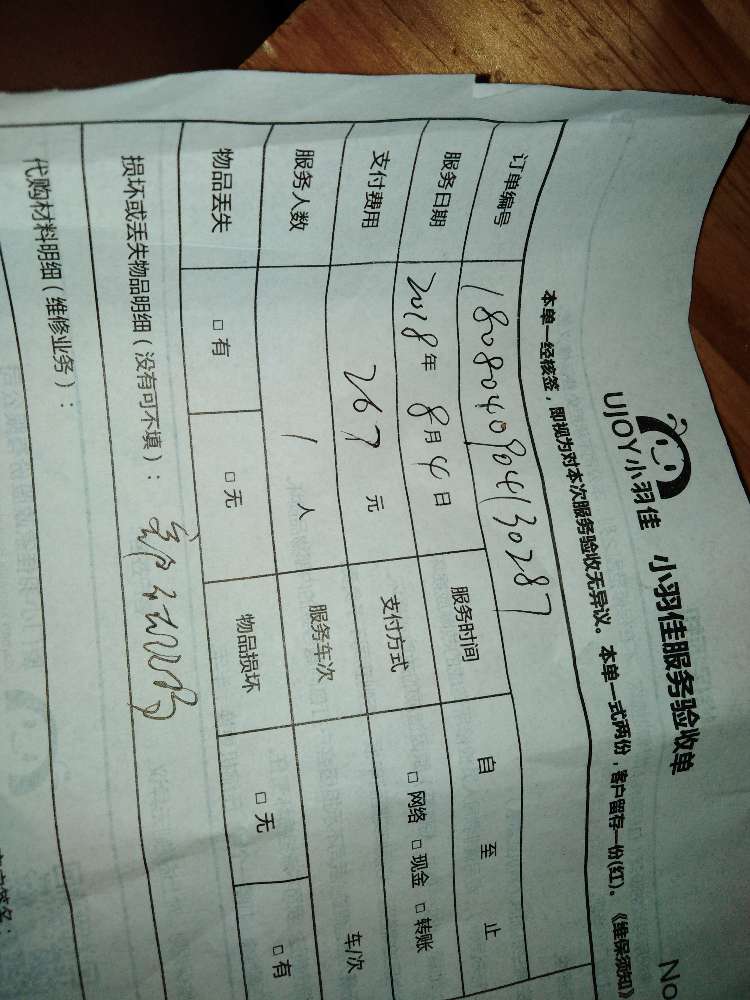 UJOY小羽佳 小羽佳服务验收单
No
本单一经核签，即视为对本次服务验收无异议。本单一式两份，客户留存一份(红)。《维保须知》
订单编号 1808040904130287
服务日期 2018年 8月4日 服务时间 自 至 止
支付费用 267 元 支付方式 □网络 □现金 □转账
服务人数 1 人 服务车次 车/次
物品丢失 □有 □无 物品损坏 □无 □有
损坏或丢失物品明细（没有可不填）：
代购材料明细（维修业务）：